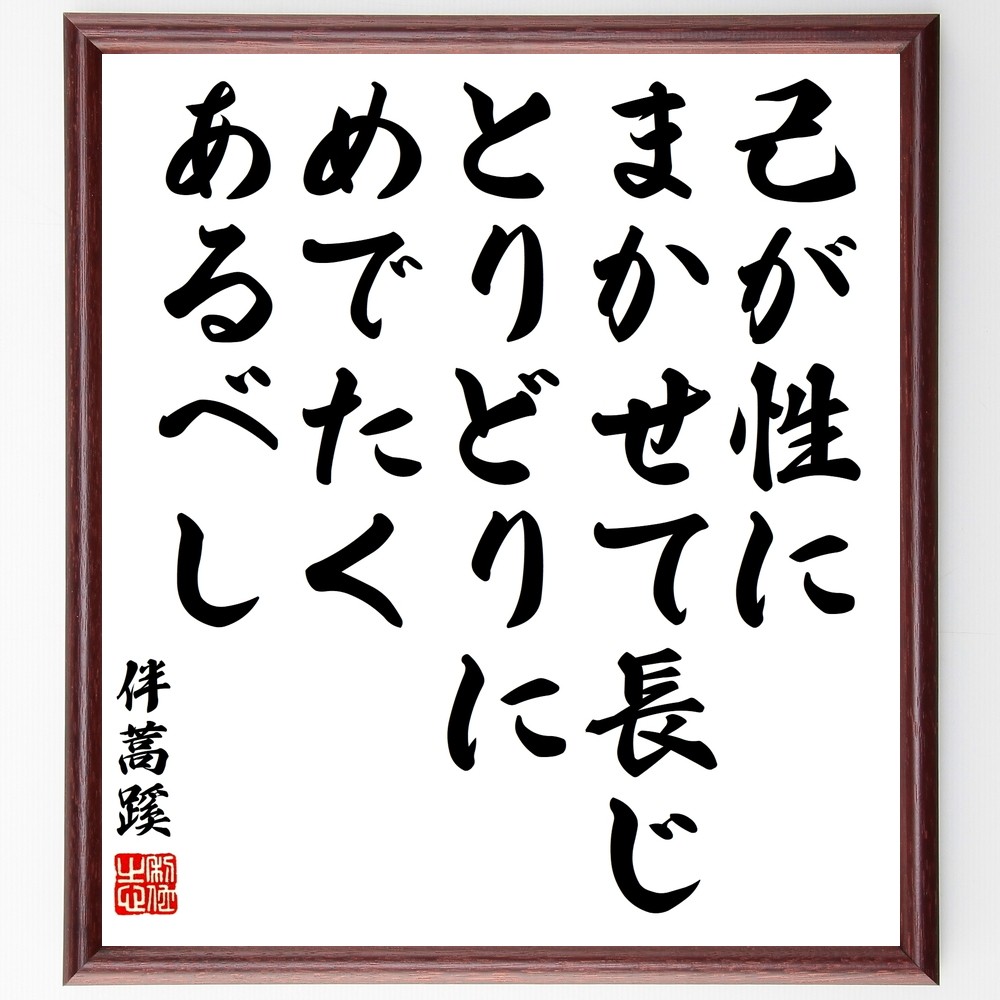 己が性に
まかせて長じ
とりどりに
めでたく
あるべし
伴蒿蹊